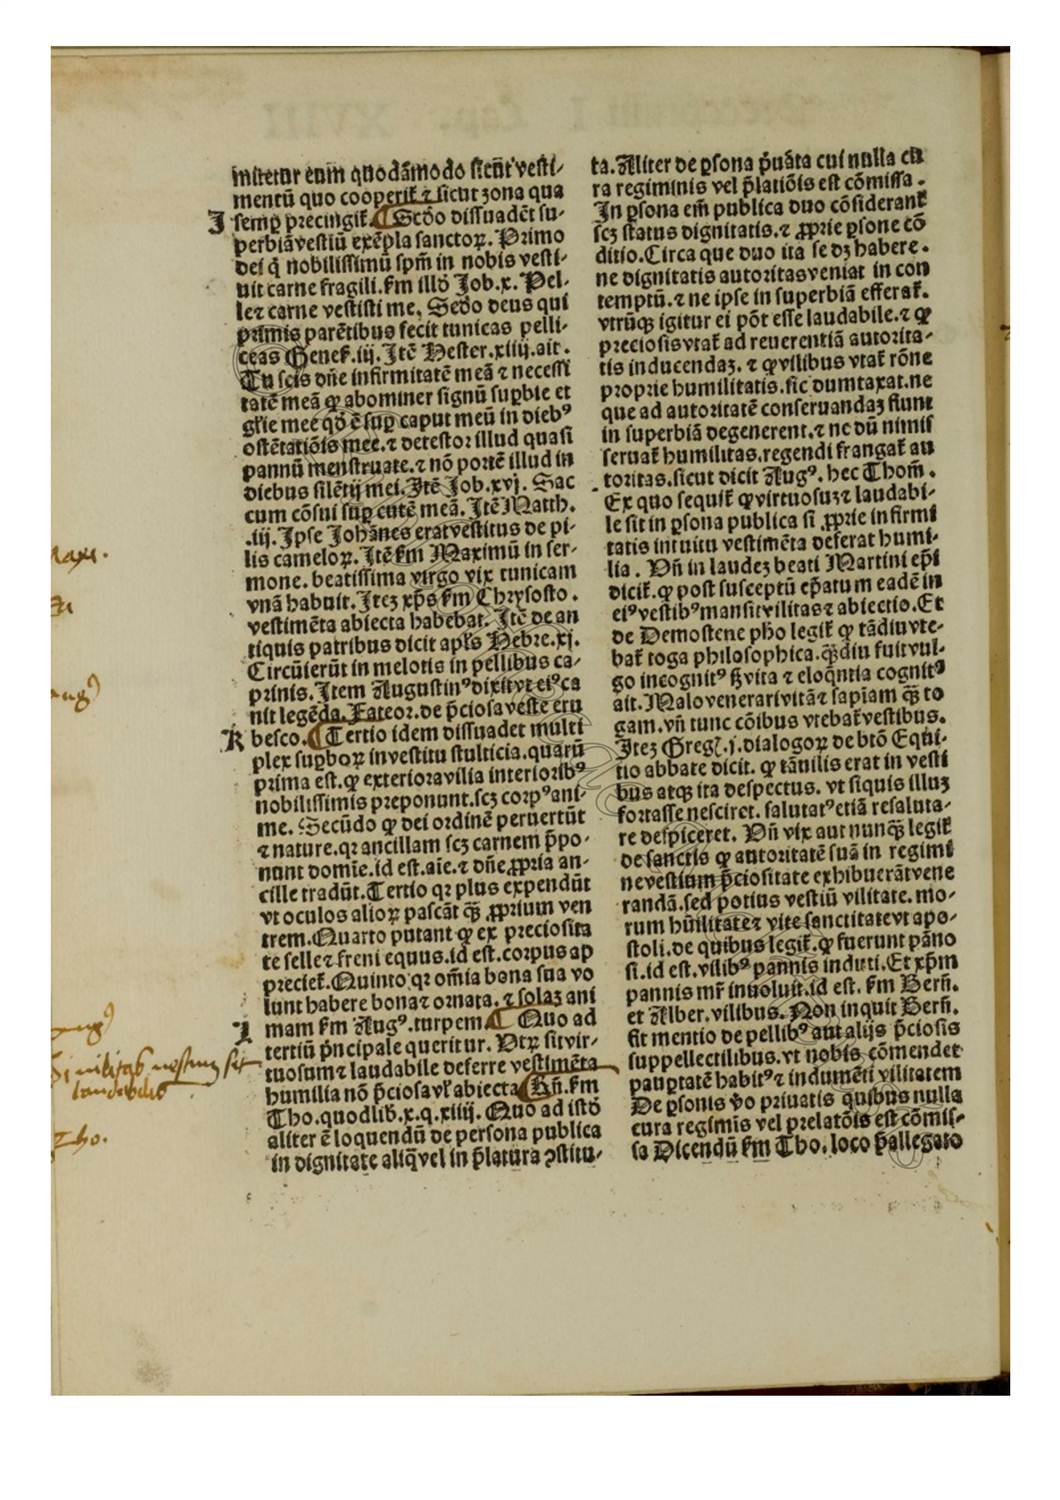 mitetur eum̄ quodāmodo sicut̄ vesti-
mentū quo cooperiť ⁊ sicut zona qua
I semꝑ precingiť. ¶ Scd́o dissuadēt su-
perbiā vestiū exēpla sanctoꝝ. Primo
dei q́ nobilissimū spm̄ in nobis vesti-
uit carne fragili. ẜm illd́ Job. x. Pel-
le ⁊ carne vestisti me. Scd́o deus qui
primis parētibus fecit tunicas pelli-
ceas Geneẜ. iij. Itē Hester. xiiij. ait.
Tu scis dn̄e infirmitatē meā ⁊ necessi
tatē meā ꝙ abominer signū suꝑbie et
gl̄rie mee qd́ ē suꝑ caput meū in diebꝰ
ostētatiōis mee. ⁊ detestor illud quasi
pannū menstruate. ⁊ nō portē illud in
diebus silētij mei. Itē Job. xvj. Sac
cum cōsui suꝑ cutē meā. Itē Matth.
.iij. Ipse Johānes erat vestitus de pi-
lis cameloꝝ. Itē ẜm Maximū in ser-
mone. beatissima virgo vix tunicam
vnā habuit. Itez xp̄s ẜm Chrysosto.
vestimēta abiecta habebat. Itē de an
tiquis patribus dicit apl̄s Hebre. xj.
Circūierūt in melotis in pellibus ca-
prinis. Item Augustinꝰ dixit vt eiꝰ ca
nit legēda. Fateor. de p̄ciosa veste eru
K besco. ¶ Tertio idem dissuadet multi
plex suꝑboꝝ in vestitu stulticia. quarū
prima est. ꝙ exteriora vilia interioribꝰ
nobilissimis preponunt. scz corpꝰ ani-
me. Secūdo ꝙ dei ordinē peruertūt
⁊ nature. qꝛ ancillam scz carnem p̄po-
nunt domīe. id est. aīe. ⁊ dn̄e ꝓpria an-
cille tradūt. Tertio qꝛ plus expendūt
vt oculos alioꝝ pascāt q̄ꝫ ꝓprium ven
trem. Quarto putant ꝙ ex preciosita
te selle ⁊ freni equus. id est. corpus ap
precieť. Quinto qꝛ om̄ia bona sua vo
lunt habere bona ⁊ ornata. ⁊ solaz ani
I mam ẜm Augꝰ. turpem. ¶ Quo ad
tertiū p̄ncipale queritur. Vtꝝ sit vir-
tuosum ⁊ laudabile deferre vestimēta
humilia nō p̄ciosa vľ abiecta ¶ Rn̄. ẜm
Tho. quodlib̄. x. q. xiiij. Quo ad istd́
aliter ē loquendū de persona publica
in dignitate aliq̄ vel in p̄latura ꝯstitu-
ta. Aliter de ꝑsona p̄uāta cui nulla cū
ra regiminis vel p̄latiōis est cōmissa.
In ꝑsona em̄ publica duo cōsideranť
scz status dignitatis. ⁊ ꝓprie ꝑsone cō
ditio. Circa que duo ita se dz habere.
ne dignitatis autoritas veniat in con
temptū. ⁊ ne ipse in superbiā efferať.
vtrūqꝫ igitur ei pōt esse laudabile. ⁊ ꝙ
preciosis vtať ad reuerentiā autorita-
tis inducendaz. ⁊ ꝙ vilibus vtať rōne
proprie humilitatis. sic dumtaxat. ne
que ad autoritatē conseruandaz fiunt
in superbiā degenerent. ⁊ ne dū nimis
seruať humilitas. regendi frangať au
toritas. sicut dicit Augꝰ. hec Thom̄.
Ex quo sequiť ꝙ virtuosuz ⁊ laudabi-
le sit in ꝑsona publica si ꝓprie infirmi
tatis intuitu vestimēta deferat humi-
lia. Vn̄ in laudez beati Martini ep̄i
diciť. ꝙ post susceptū ep̄atum eadē in
eiꝰ vestibꝰ mansit vilitas ⁊ abiectio. Et
de Demostene ph̄o legiť ꝙ tādiu vte-
bať toga philosophica. q̄ꝫdiu fuit vul-
go incognitꝰ ẞ vita ⁊ eloq̄ntia cognitꝰ
ait. Malo venerari vitā ⁊ sapīam q̄ꝫ to
gam. vn̄ tunc cōibus vtebať vestibus.
Itez Greg̃. j. dialogoꝝ de btō Equi-
tio abbate dicit. ꝙ tā vilis erat in vesti
bus atqꝫ ita despectus. vt siquis illuz
fortasse nesciret. salutatꝰ etiā resaluta-
re despiceret. Vn̄ vix aut nunq̄ꝫ legiť
de sanctis ꝙ autoritatē suā in regimi
ne vestium p̄ciositate exhibuerāt vene
randā. sed potius vestiū vilitate. mo-
rum hūilitate ⁊ vite sanctitate vt apo-
stoli. de quibus legiť. ꝙ fuerunt pāno
si. id est. vilibꝰ pannis induti. Et xp̄m
pannis mr̄ inuoluit. id est. ẜm Bern̄.
et Alber. vilibus. Non inquit Bern̄.
fit mentio de pellibꝰ aut alijs p̄ciosis
suppellectilibus. vt nobis cōmendet
pauꝑtatē habitꝰ ⁊ indumēti vilitatem
De ꝑsonis v̄o priuatis quibus nulla
cura regimīs vel prelatōis est cōmis-
sa Dicendū ẜm Tho. loco p̄allegato
augꝰ
augꝰ
laudabilis
Tho.